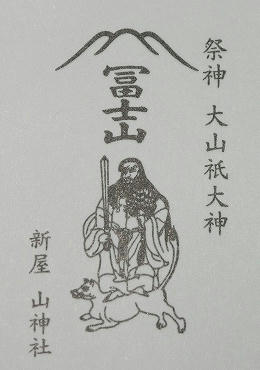 祭神 大山祇大神
冨士山
新屋 山神社